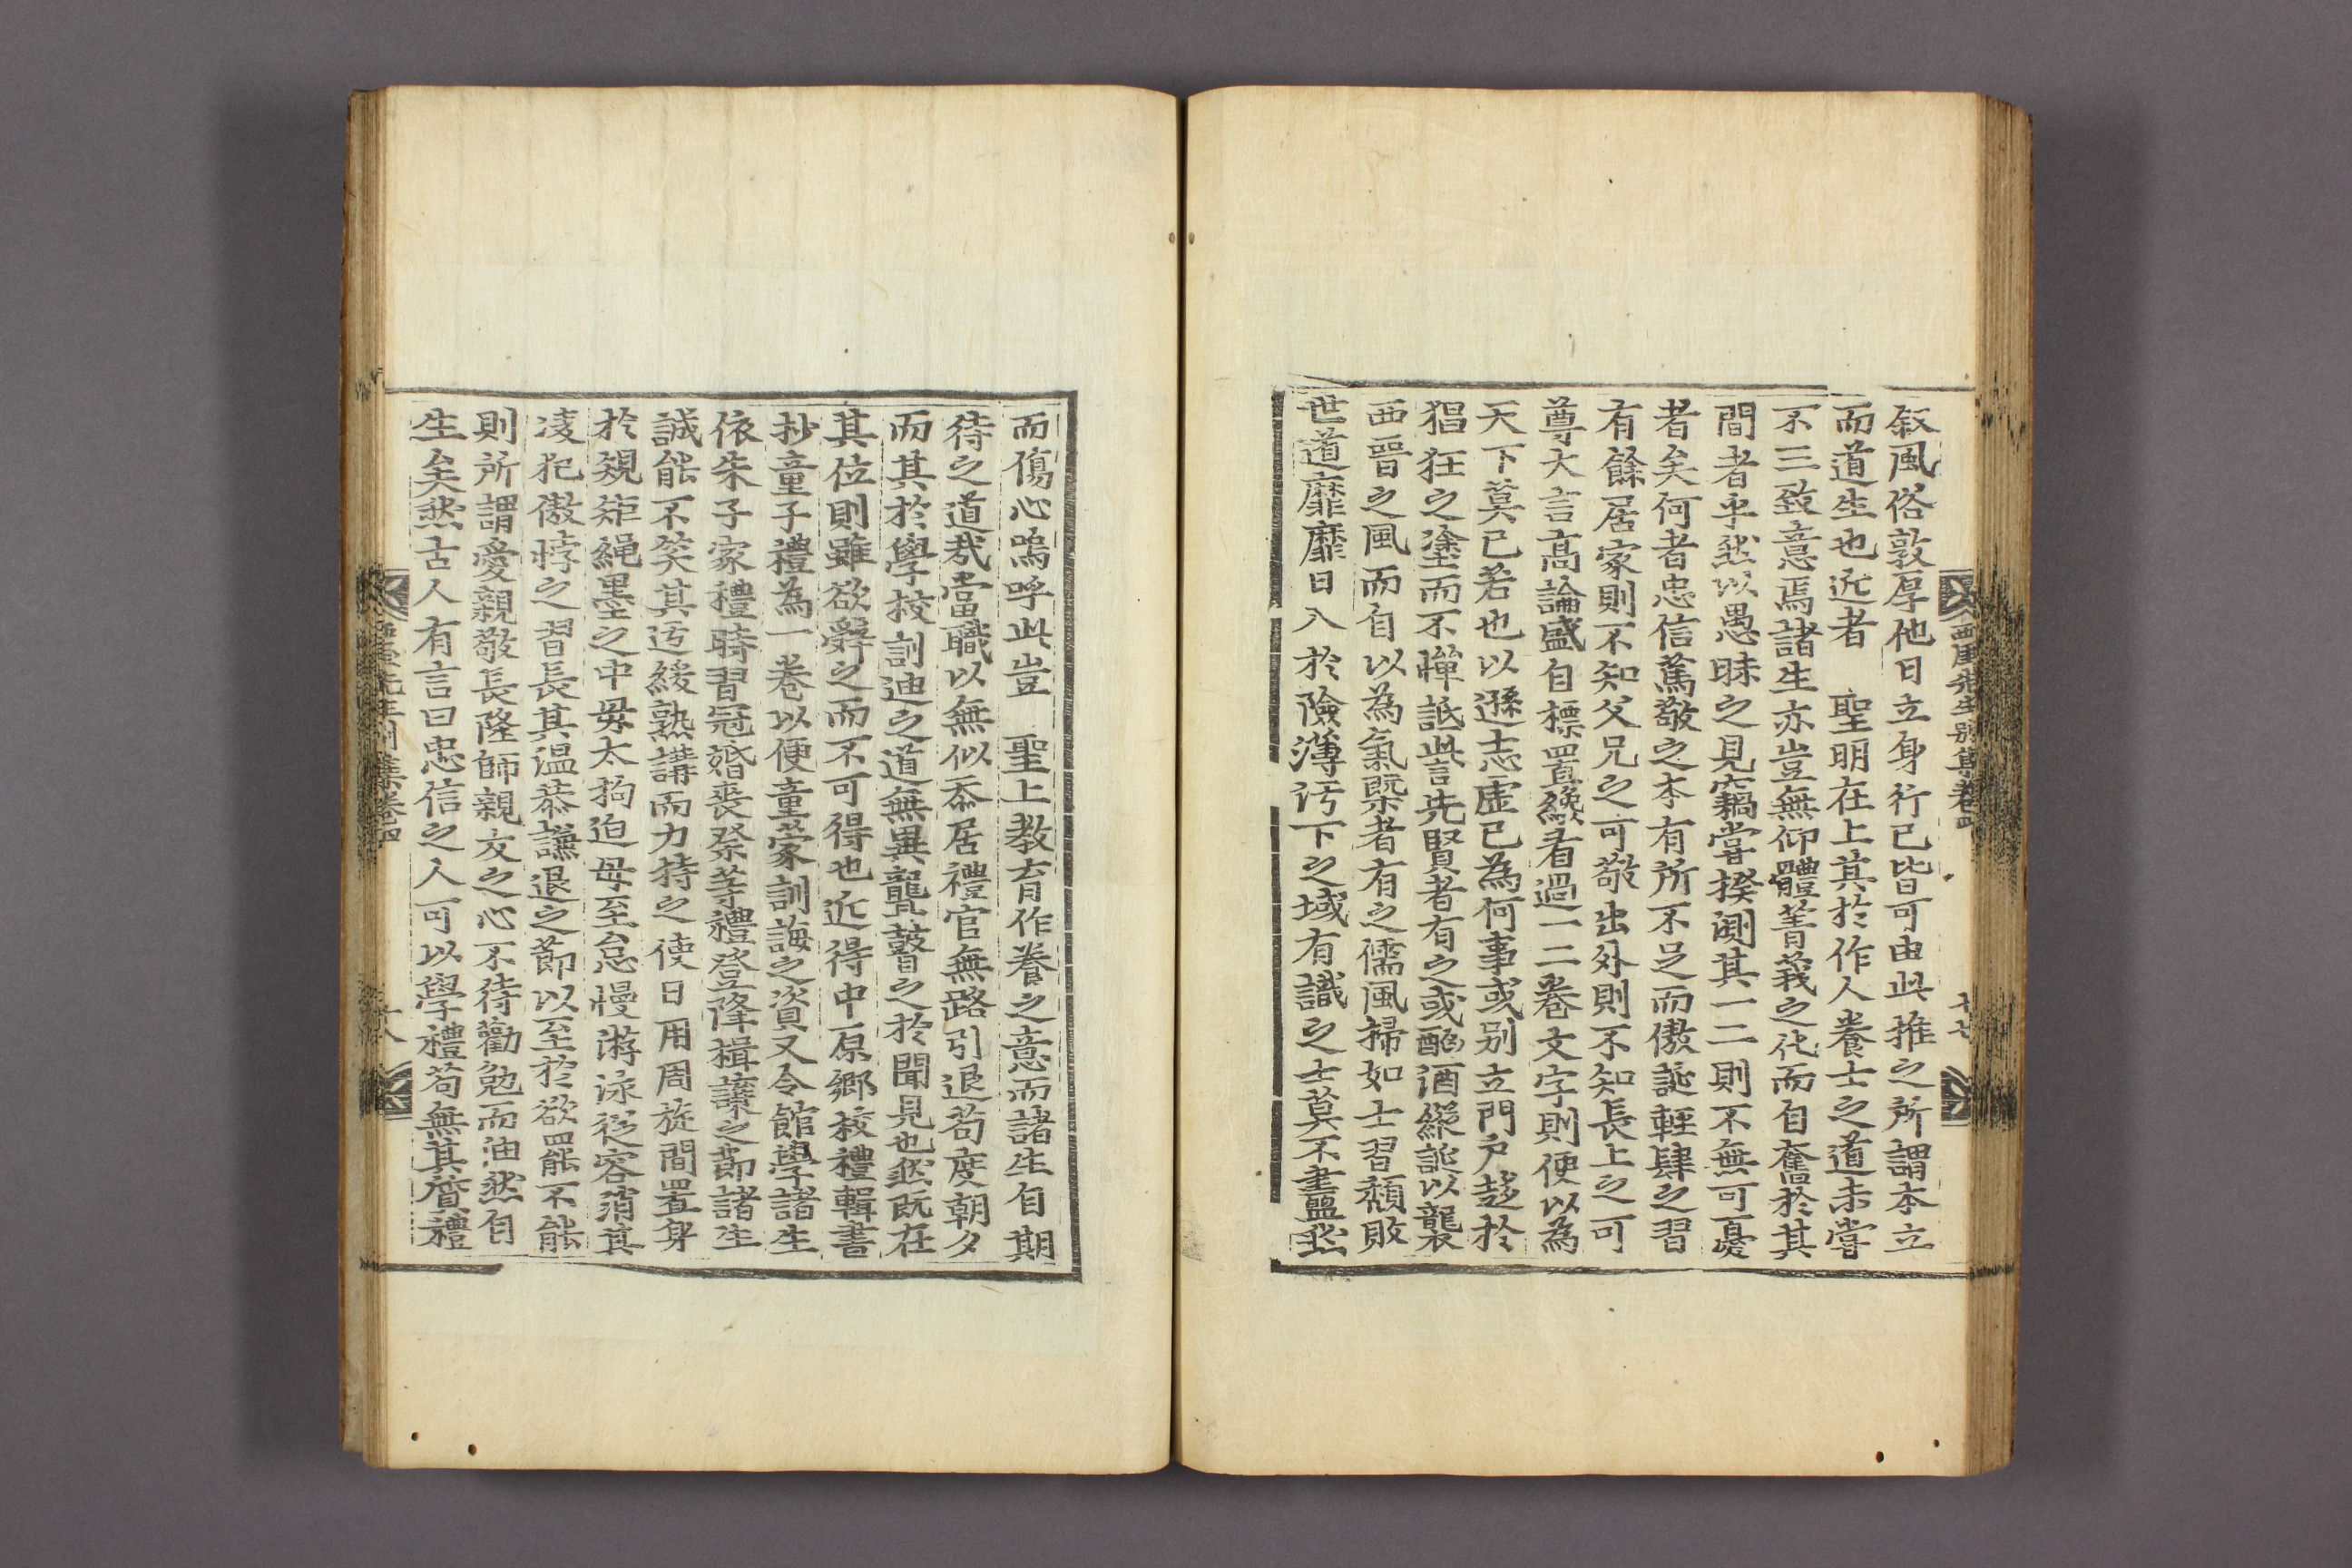 西厓先生別集卷四
十七
叙風俗敦厚他日立身行已皆可由此推之所謂本立
而道生也近者 聖明在上其於作人養士之道未嘗
不三致意焉諸生亦豈無仰體菁莪之化而自奮於其
間者乎然以愚昧之見竊嘗揆測其一二則不無可憂
者矣何者忠信篤敬之本有所不足而傲誕輕肆之習
有餘居家則不知父兄之可敬出外則不知長上之可
尊大言高論盛自標置纔看過一二卷文字則便以爲
天下莫已若也以遜志虛已爲何事或别立門户趍於
猖狂之塗而不憚詆訾先賢者有之或酗酒縱誕以襲
西晉之風而自以為氣槩者有之儒風掃如士習頹敗
世道靡靡日入於險薄汚下之域有識之士莫不盡盡然
而傷心嗚呼此豈 聖上教育作養之意而諸生自期
待之道哉當職以無似忝居禮官無路引退苟度朝夕
而其於學校訓迪之道無異聾瞽之於聞見也然既在
其位則雖欲辭之而不可得也近得中原鄉校禮輯書
抄童子禮為一卷以便童蒙訓誨之資又令館學諸生
依朱子家禮時習冠婚喪祭等禮登降揖讓之節諸生
誠能不笑其迃緩熟講而力持之使日用周旋間置身
於䂓矩繩墨之中毋太拘迫毋至怠慢游泳從容消其
凌犯傲悖之習長其温恭謙退之節以至於欲罷不能
則所謂愛親敬長隆師親友之心不待勸勉而油然自
生矣然古人有言曰忠信之人可以學禮苟無其質禮
西厓先生別集卷四
十八